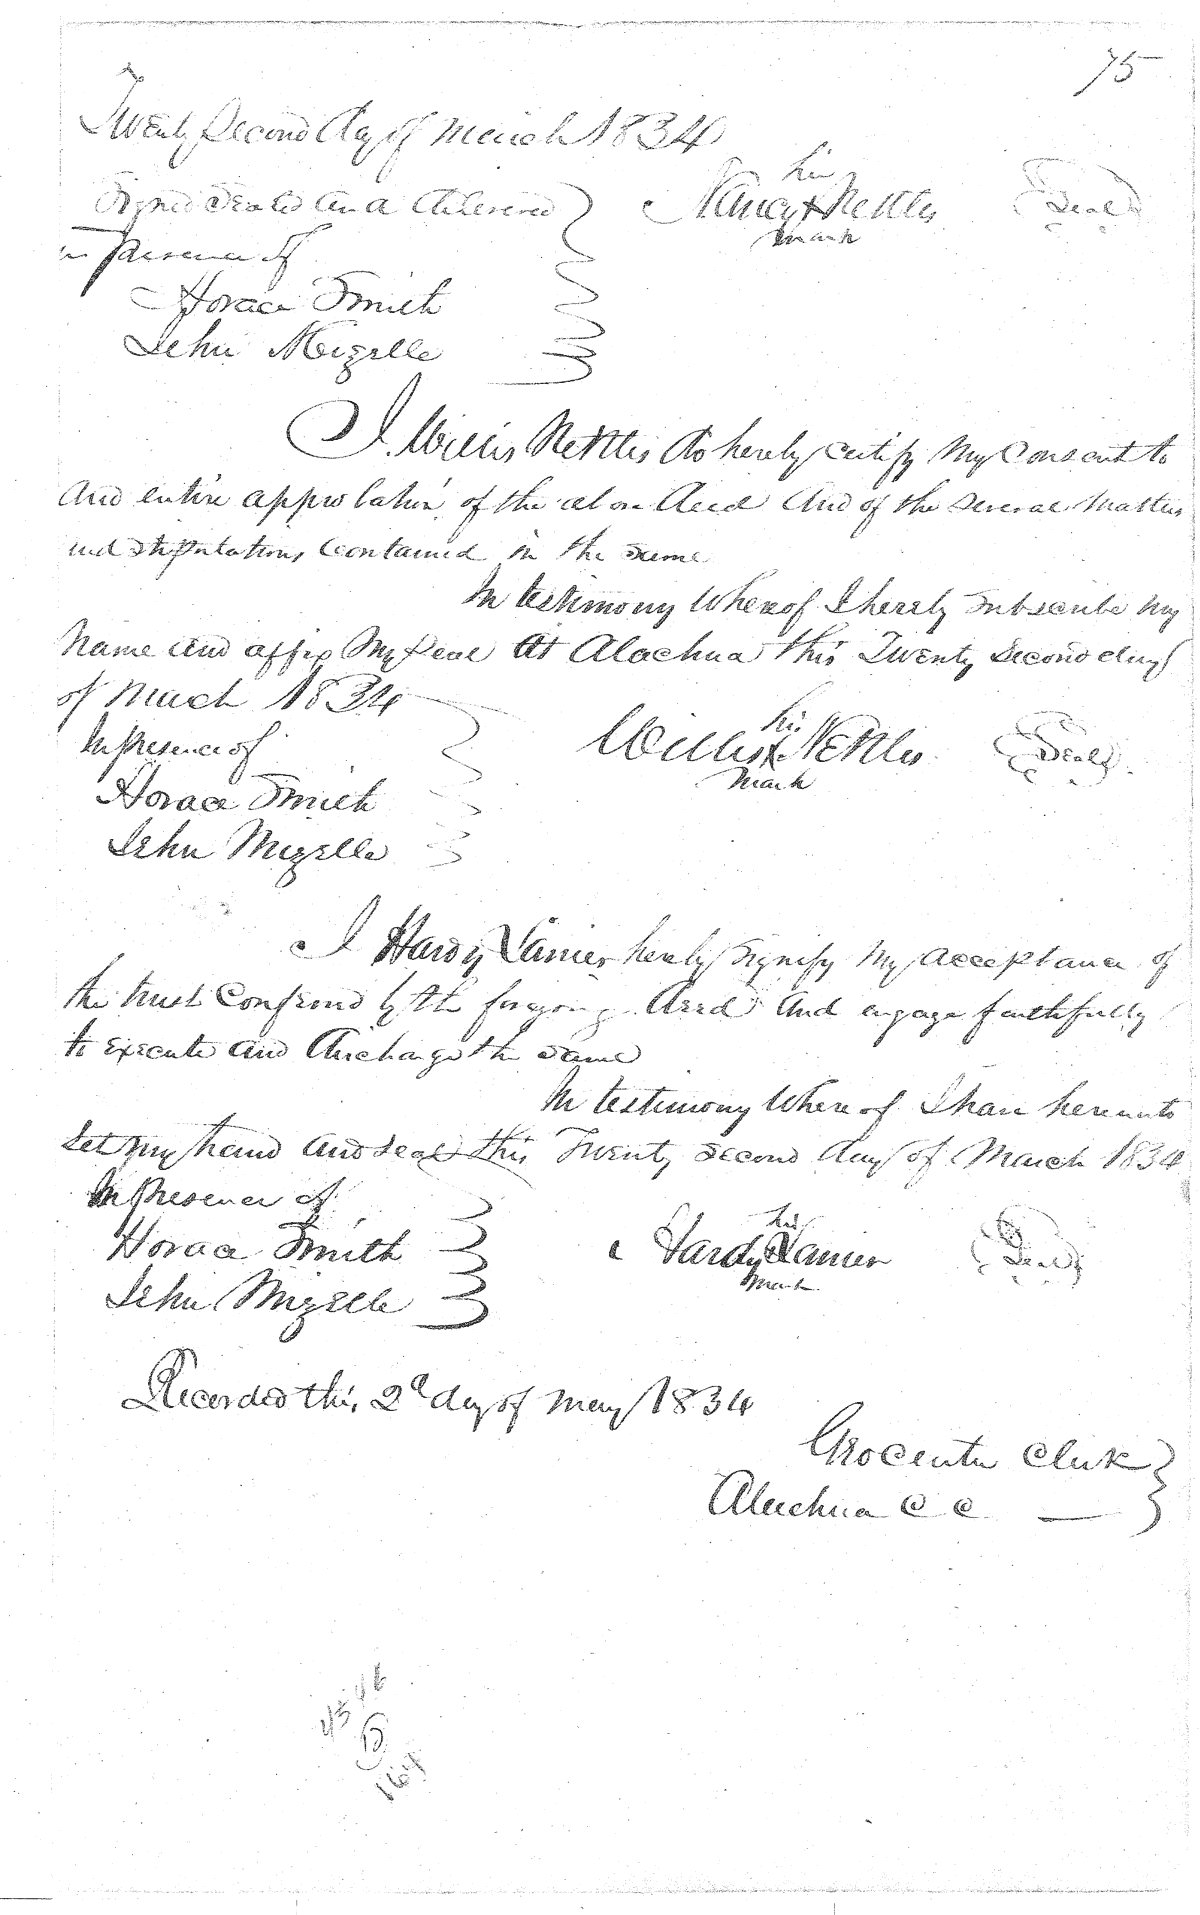 75
Twenty Second day of March 1834
Signed Sealed and delivered
in presence of
her
Nancy x Nettles Seal
mark
Horace Smith
John Mizelle
I Willis Nettles do hereby certify my consent to
and entire approbation of the above deed and of the several matters
and stipulations contained in the same
In testimony whereof I hereby subscribe my
name and affix my seal at Alachua this Twenty Second day
of March 1834
In presence of
his
Willis x Nettles Seal
mark
Horace Smith
John Mizelle
I Hardy Lanier hereby signify my acceptance of
the trust confired by the forgoing deed and engage faithfully
to execute and discharge the same
In testimony whereof I have hereunto
set my hand and seal this Twenty Second day of March 1834
In presence of
his
Hardy x Lanier Seal
mark
Horace Smith
John Mizelle
Recorded this 2d day of May 1834
Clerk
Alachua C C